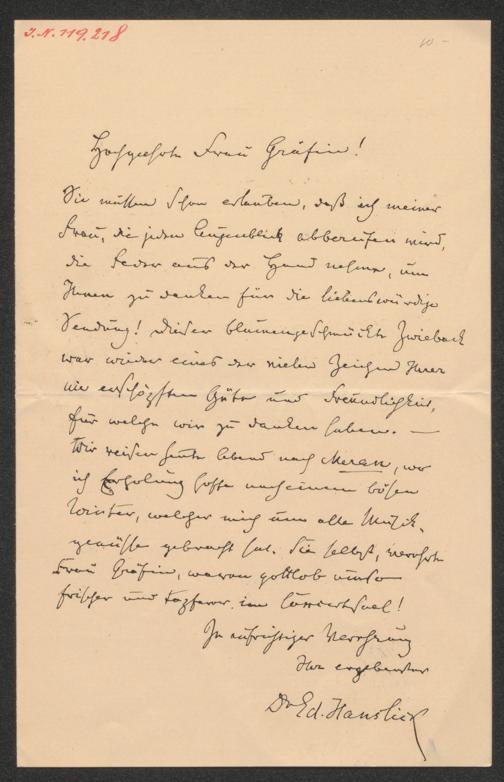 J.N. 119.218
10.-
Hochgeehrte Frau Gräfin!
Sie müssen schon erlauben, daß ich meiner
Frau, die jeden Augenblick abberufen wird,
die Feder aus der Hand nehme, um
Ihnen zu danken für die liebenswürdige
Sendung! Dieser blumengeschmückte Zwieback
war wieder eines der vielen Zeichen Ihrer
nie erschöpften Güte und Freundlichkeit,
für welche wir zu danken haben. —
Wir reisen heute Abend nach Meran, wo
ich Erholung hoffe nach einem bösen
Winter, welcher mich um alle Musik-
genüsse gebracht hat. Sie selbst, verehrte
Frau Gräfin, waren gottlob umso
frischer und tapferer im Concertsaal!
In aufrichtiger Verehrung
Ihr ergebenster
Dr Ed. Hanslick